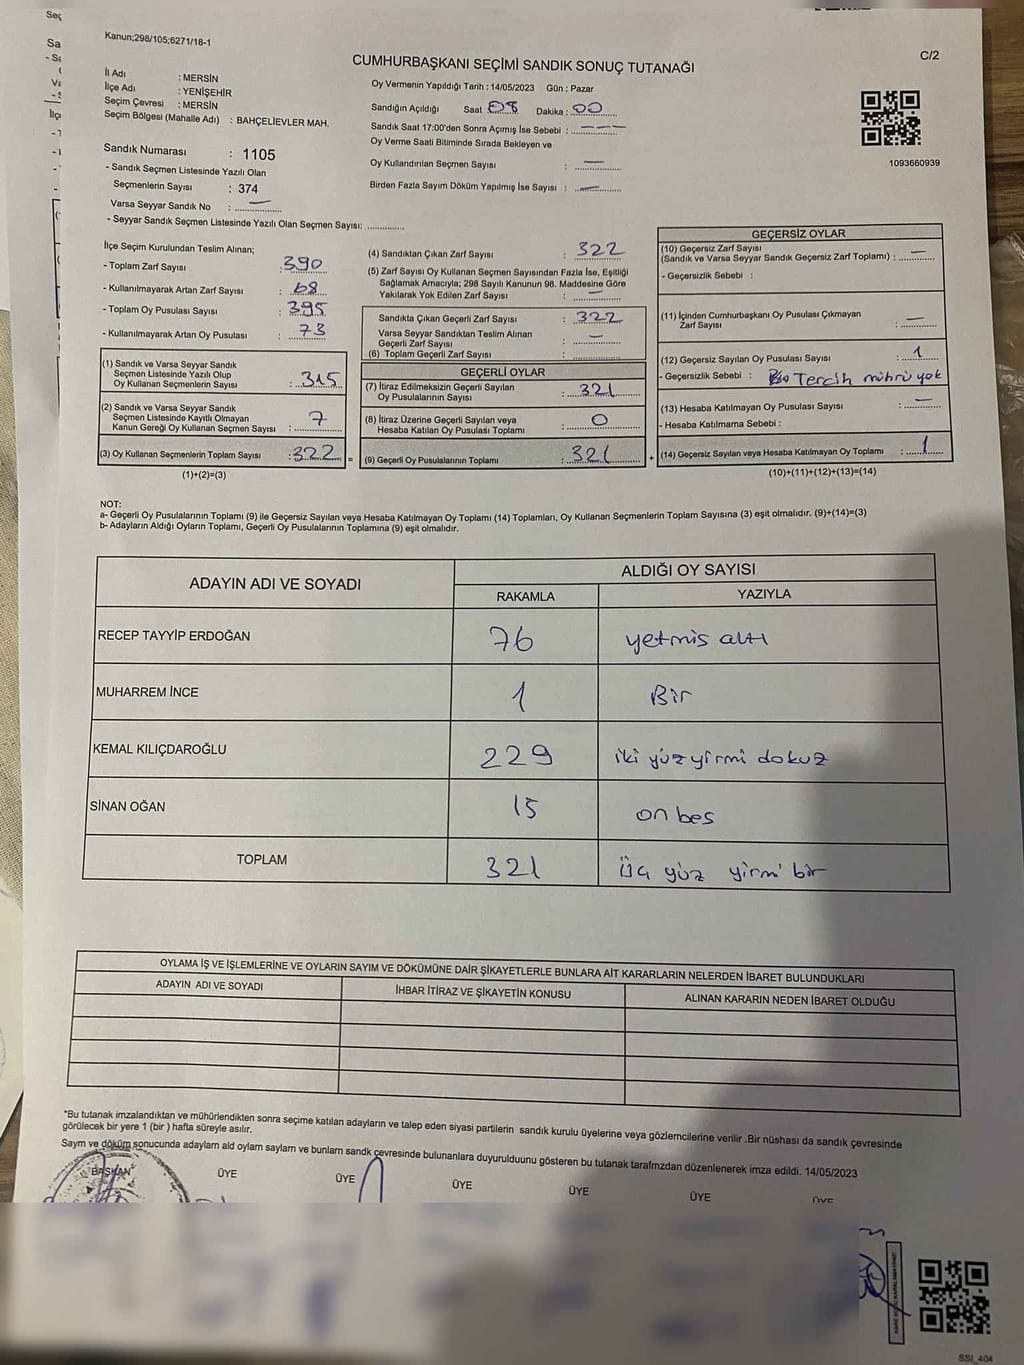 Kanun;298/105;6271/18-1
C/2
CUMHURBAŞKANI SEÇİMİ SANDIK SONUÇ TUTANAĞI
İl Adı : MERSİN
İlçe Adı : YENİŞEHİR
Seçim Çevresi : MERSİN
Seçim Bölgesi (Mahalle Adı) : BAHÇELİEVLER MAH.
Oy Vermenin Yapıldığı Tarih : 14/05/2023 Gün : Pazar
Sandığın Açıldığı Saat 08 Dakika : 00
Sandık Saat 17:00'den Sonra Açımış İse Sebebi : ---
Oy Verme Saati Bitiminde Sırada Bekleyen ve
Oy Kullandırılan Seçmen Sayısı : —
Birden Fazla Sayım Döküm Yapılmış İse Sayısı : —
1093660939
Sandık Numarası : 1105
- Sandık Seçmen Listesinde Yazılı Olan
Seçmenlerin Sayısı : 374
Varsa Seyyar Sandık No : —
- Seyyar Sandık Seçmen Listesinde Yazılı Olan Seçmen Sayısı: ..............
İlçe Seçim Kurulundan Teslim Alınan;
- Toplam Zarf Sayısı : 390
- Kullanılmayarak Artan Zarf Sayısı : 68
- Toplam Oy Pusulası Sayısı : 395
- Kullanılmayarak Artan Oy Pusulası : 73
(1) Sandık ve Varsa Seyyar Sandık
Seçmen Listesinde Yazılı Olup
Oy Kullanan Seçmenlerin Sayısı : 315
(2) Sandık ve Varsa Seyyar Sandık
Seçmen Listesinde Kayıtlı Olmayan
Kanun Gereği Oy Kullanan Seçmen Sayısı : 7
(3) Oy Kullanan Seçmenlerin Toplam Sayısı : 322 =
(1)+(2)=(3)
(4) Sandıktan Çıkan Zarf Sayısı : 322
(5) Zarf Sayısı Oy Kullanan Seçmen Sayısından Fazla İse, Eşitliği
Sağlamak Amacıyla; 298 Sayılı Kanunun 98. Maddesine Göre
Yakılarak Yok Edilen Zarf Sayısı : —
Sandıkta Çıkan Geçerli Zarf Sayısı : 322
Varsa Seyyar Sandıktan Teslim Alınan
Geçerli Zarf Sayısı : —
(6) Toplam Geçerli Zarf Sayısı : ..............
GEÇERLİ OYLAR
(7) İtiraz Edilmeksizin Geçerli Sayılan
Oy Pusulalarının Sayısı : 321
(8) İtiraz Üzerine Geçerli Sayılan veya
Hesaba Katılan Oy Pusulası Toplamı : 0
(9) Geçerli Oy Pusulalarının Toplamı : 321 +
GEÇERSİZ OYLAR
(10) Geçersiz Zarf Sayısı
(Sandık ve Varsa Seyyar Sandık Geçersiz Zarf Toplamı) : —
- Geçersizlik Sebebi :
(11) İçinden Cumhurbaşkanı Oy Pusulası Çıkmayan
Zarf Sayısı : —
(12) Geçersiz Sayılan Oy Pusulası Sayısı : 1
- Geçersizlik Sebebi : Tercih mührü yok
(13) Hesaba Katılmayan Oy Pusulası Sayısı : —
- Hesaba Katılmama Sebebi :
(14) Geçersiz Sayılan veya Hesaba Katılmayan Oy Toplamı : 1
(10)+(11)+(12)+(13)=(14)
NOT:
a- Geçerli Oy Pusulalarının Toplamı (9) ile Geçersiz Sayılan veya Hesaba Katılmayan Oy Toplamı (14) Toplamları, Oy Kullanan Seçmenlerin Toplam Sayısına (3) eşit olmalıdır. (9)+(14)=(3)
b- Adayların Aldığı Oyların Toplamı, Geçerli Oy Pusulalarının Toplamına (9) eşit olmalıdır.
ADAYIN ADI VE SOYADI
ALDIĞI OY SAYISI
RAKAMLA YAZIYLA
RECEP TAYYİP ERDOĞAN 76 yetmis altı
MUHARREM İNCE 1 Bir
KEMAL KILIÇDAROĞLU 229 iki yüz yirmi dokuz
SİNAN OĞAN 15 on bes
TOPLAM 321 üç yüz yirmi bir
OYLAMA İŞ VE İŞLEMLERİNE VE OYLARIN SAYIM VE DÖKÜMÜNE DAİR ŞİKAYETLERLE BUNLARA AİT KARARLARIN NELERDEN İBARET BULUNDUKLARI
ADAYIN ADI VE SOYADI İHBAR İTİRAZ VE ŞİKAYETİN KONUSU ALINAN KARARIN NEDEN İBARET OLDUĞU
*Bu tutanak imzalandıktan ve mühürlendikten sonra seçime katılan adayların ve talep eden siyasi partilerin sandık kurulu üyelerine veya gözlemcilerine verilir .Bir nüshası da sandık çevresinde
görülecek bir yere 1 (bir ) hafta süreyle asılır.
Sayım ve döküm sonucunda adayların ald oyların sayların ve bunların sandık çevresinde bulunanlara duyurulduunu gösteren bu tutanak tarafmzdan düzenlenerek imza edildi. 14/05/2023
BAŞKAN ÜYE ÜYE ÜYE ÜYE ÜYE ÜYE
SSI_404